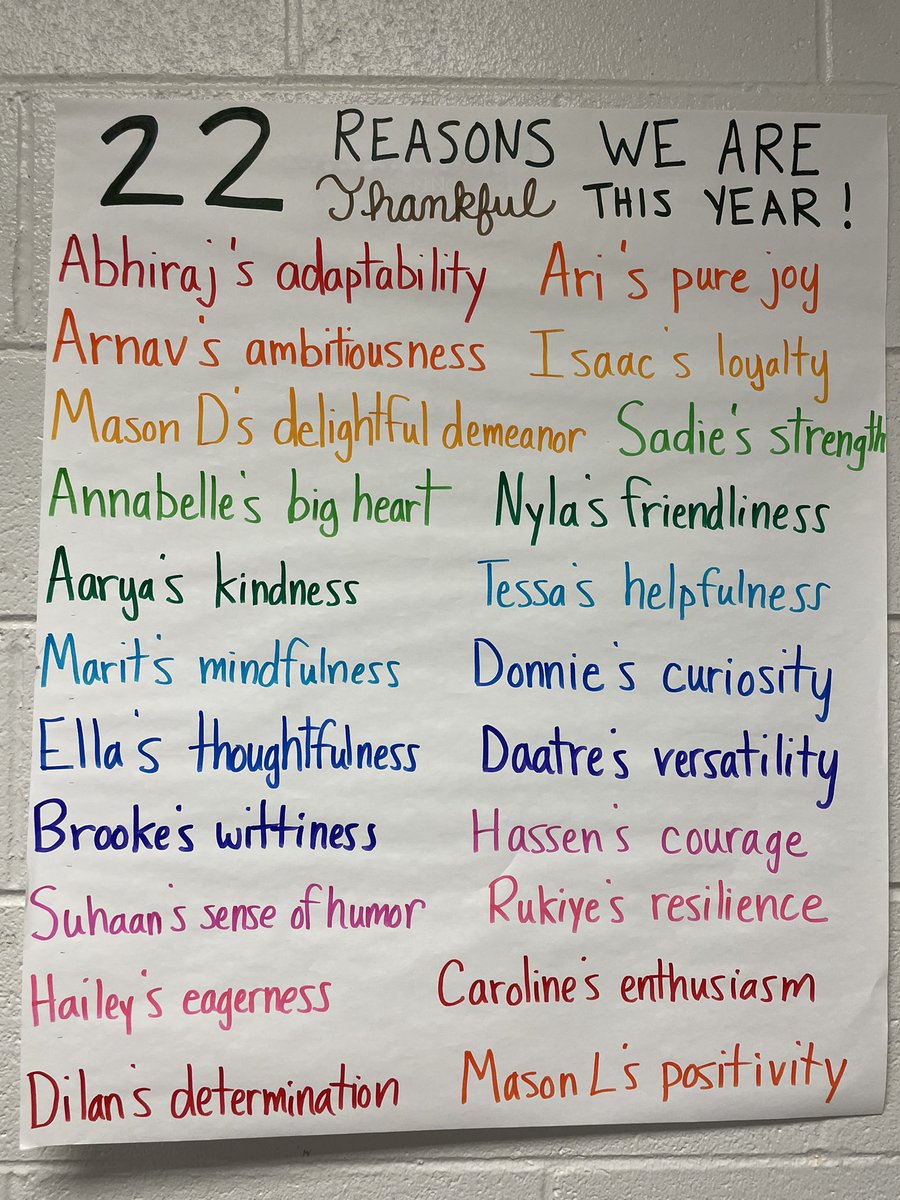 22 REASONS WE ARE
Thankful THIS YEAR!
Abhiraj's adaptability Ari's pure joy
Arnav's ambitiousness Isaac's loyalty
Mason D's delightful demeanor Sadie's strength
Annabelle's big heart Nyla's friendliness
Aarya's kindness Tessa's helpfulness
Marit's mindfulness Donnie's curiosity
Ella's thoughtfulness Daatre's versatility
Brooke's wittiness Hassen's courage
Suhaan's sense of humor Rukiye's resilience
Hailey's eagerness Caroline's enthusiasm
Dilan's determination Mason L's positivity